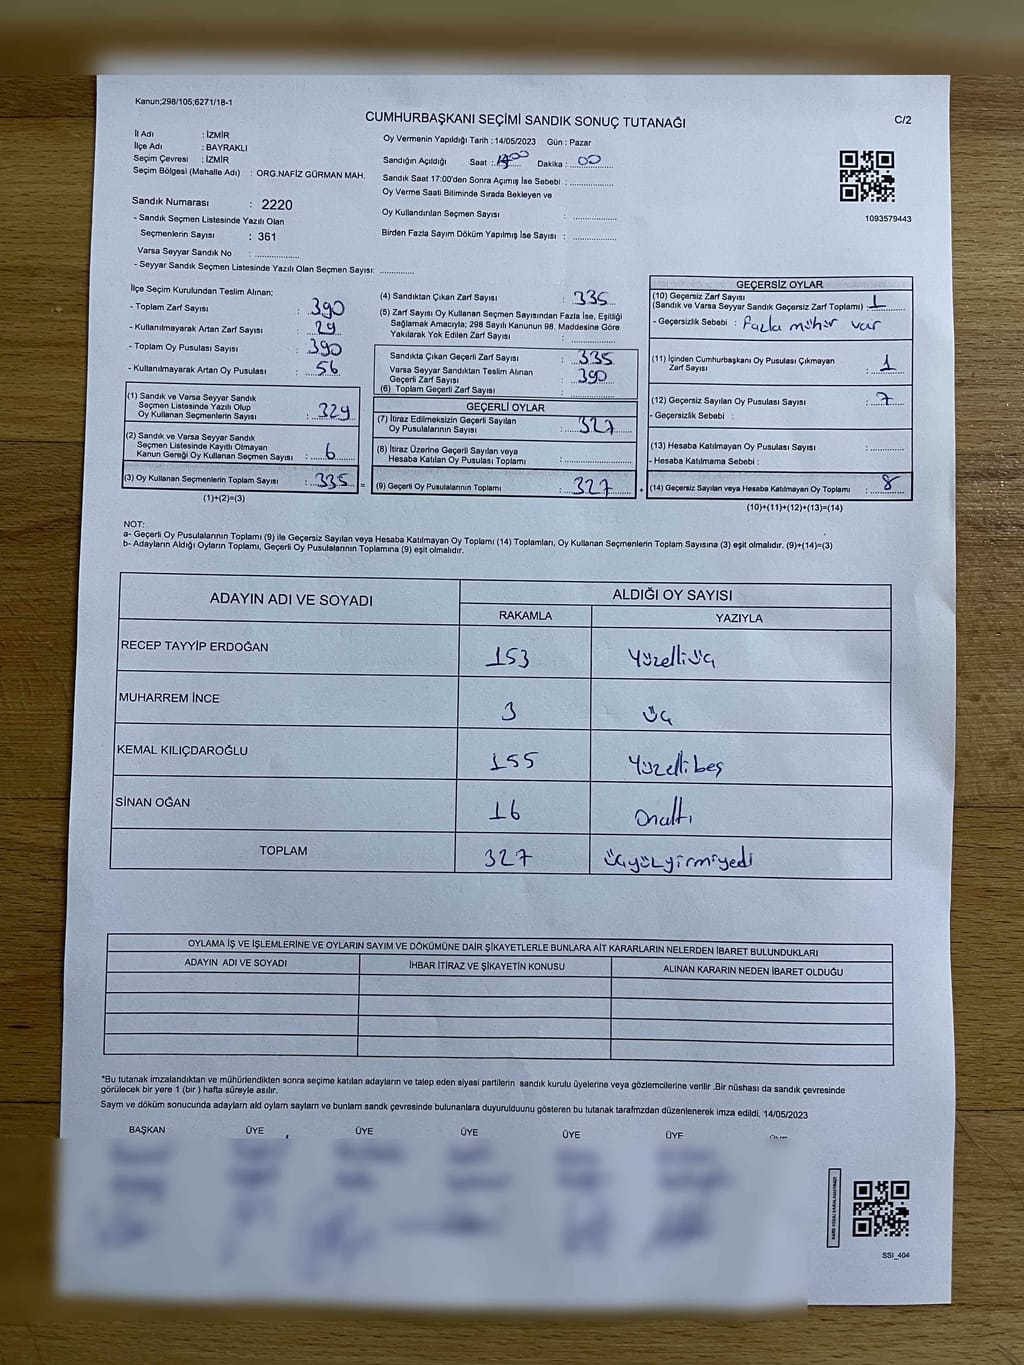 Kanun;298/105;6271/18-1
CUMHURBAŞKANI SEÇİMİ SANDIK SONUÇ TUTANAĞI
C/2
İl Adı : İZMİR
İlçe Adı : BAYRAKLI
Seçim Çevresi : İZMİR
Seçim Bölgesi (Mahalle Adı) : ORG.NAFİZ GÜRMAN MAH.
Sandık Numarası : 2220
- Sandık Seçmen Listesinde Yazılı Olan
Seçmenlerin Sayısı : 361
Varsa Seyyar Sandık No :
- Seyyar Sandık Seçmen Listesinde Yazılı Olan Seçmen Sayısı:
Oy Vermenin Yapıldığı Tarih : 14/05/2023 Gün : Pazar
Sandığın Açıldığı Saat : Dakika : 00
Sandık Saat 17:00'den Sonra Açımış İse Sebebi :
Oy Verme Saati Bitiminde Sırada Bekleyen ve
Oy Kullandırılan Seçmen Sayısı :
Birden Fazla Sayım Döküm Yapılmış İse Sayısı :
1093579443
İlçe Seçim Kurulundan Teslim Alınan;
- Toplam Zarf Sayısı : 390
- Kullanılmayarak Artan Zarf Sayısı : 29
- Toplam Oy Pusulası Sayısı : 390
- Kullanılmayarak Artan Oy Pusulası : 56
(1) Sandık ve Varsa Seyyar Sandık
Seçmen Listesinde Yazılı Olup
Oy Kullanan Seçmenlerin Sayısı : 329
(2) Sandık ve Varsa Seyyar Sandık
Seçmen Listesinde Kayıtlı Olmayan
Kanun Gereği Oy Kullanan Seçmen Sayısı : 6
(3) Oy Kullanan Seçmenlerin Toplam Sayısı : 335 =
(1)+(2)=(3)
(4) Sandıktan Çıkan Zarf Sayısı : 335
(5) Zarf Sayısı Oy Kullanan Seçmen Sayısından Fazla İse, Eşitliği
Sağlamak Amacıyla; 298 Sayılı Kanunun 98. Maddesine Göre
Yakılarak Yok Edilen Zarf Sayısı :
Sandıkta Çıkan Geçerli Zarf Sayısı : 335
Varsa Seyyar Sandıktan Teslim Alınan
Geçerli Zarf Sayısı : 390
(6) Toplam Geçerli Zarf Sayısı :
GEÇERLİ OYLAR
(7) İtiraz Edilmeksizin Geçerli Sayılan
Oy Pusulalarının Sayısı : 327
(8) İtiraz Üzerine Geçerli Sayılan veya
Hesaba Katılan Oy Pusulası Toplamı :
(9) Geçerli Oy Pusulalarının Toplamı : 327 +
GEÇERSİZ OYLAR
(10) Geçersiz Zarf Sayısı
(Sandık ve Varsa Seyyar Sandık Geçersiz Zarf Toplamı) : 1
- Geçersizlik Sebebi : Fazla mühür var
(11) İçinden Cumhurbaşkanı Oy Pusulası Çıkmayan
Zarf Sayısı : 1
(12) Geçersiz Sayılan Oy Pusulası Sayısı : 7
- Geçersizlik Sebebi :
(13) Hesaba Katılmayan Oy Pusulası Sayısı :
- Hesaba Katılmama Sebebi :
(14) Geçersiz Sayılan veya Hesaba Katılmayan Oy Toplamı : 8
(10)+(11)+(12)+(13)=(14)
NOT:
a- Geçerli Oy Pusulalarının Toplamı (9) ile Geçersiz Sayılan veya Hesaba Katılmayan Oy Toplamı (14) Toplamları, Oy Kullanan Seçmenlerin Toplam Sayısına (3) eşit olmalıdır. (9)+(14)=(3)
b- Adayların Aldığı Oyların Toplamı, Geçerli Oy Pusulalarının Toplamına (9) eşit olmalıdır.
ADAYIN ADI VE SOYADI ALDIĞI OY SAYISI
RAKAMLA YAZIYLA
RECEP TAYYİP ERDOĞAN 153 Yüzelliüç
MUHARREM İNCE 3 üç
KEMAL KILIÇDAROĞLU 155 Yüzellibeş
SİNAN OĞAN 16 Onaltı
TOPLAM 327 üçyüzyirmiyedi
OYLAMA İŞ VE İŞLEMLERİNE VE OYLARIN SAYIM VE DÖKÜMÜNE DAİR ŞİKAYETLERLE BUNLARA AİT KARARLARIN NELERDEN İBARET BULUNDUKLARI
ADAYIN ADI VE SOYADI İHBAR İTİRAZ VE ŞİKAYETİN KONUSU ALINAN KARARIN NEDEN İBARET OLDUĞU
*Bu tutanak imzalandıktan ve mühürlendikten sonra seçime katılan adayların ve talep eden siyasi partilerin sandık kurulu üyelerine veya gözlemcilerine verilir .Bir nüshası da sandık çevresinde
görülecek bir yere 1 (bir ) hafta süreyle asılır.
Saym ve döküm sonucunda adayların ald oylam saylarn ve bunlarn sandk çevresinde bulunanlara duyurulduunu gösteren bu tutanak tarafmzdan düzenlenerek imza edildi. 14/05/2023
BAŞKAN ÜYE ÜYE ÜYE ÜYE ÜYE
SSI_404